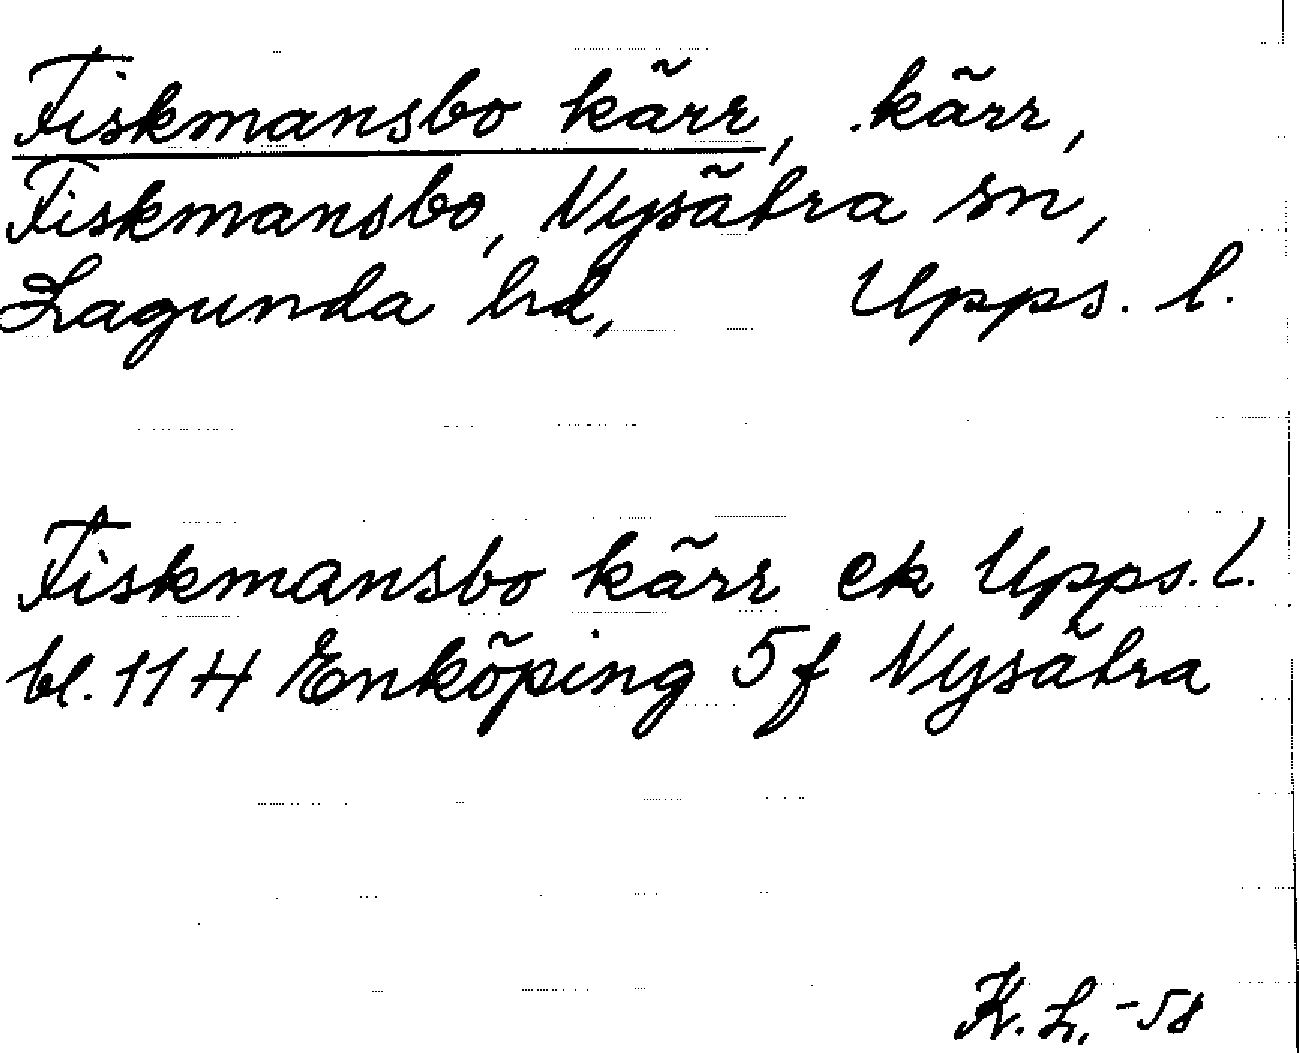 Fiskmansbo kärr, kärr,
Fiskmansbo, Nysätra sn,
Lagunda hd, Upps. l.
Fiskmansbo kärr ek Upps. l.
bl. 11 H Enköping 5 f Nysätra
K. L. -58